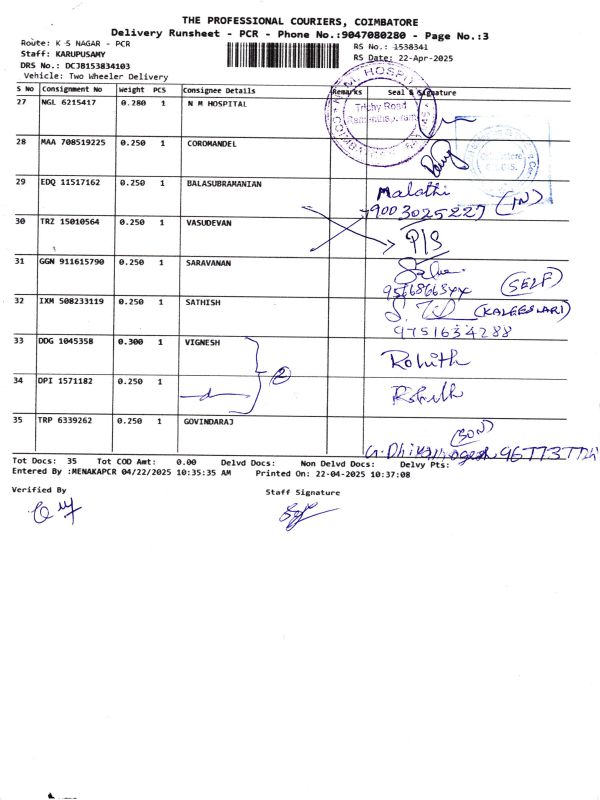 THE PROFESSIONAL COURIERS, COIMBATORE
Delivery Runsheet - PCR - Phone No.:9047080280 - Page No.:3
Route: K S NAGAR - PCR
RS No.: 1538341
Staff: KARUPUSAMY
RS Date: 22-Apr-2025
DRS No.: DCJB153834103
Vehicle: Two Wheeler Delivery
S No Consignment No Weight PCS Consignee Details Remarks Seal & Signature
27 NGL 6215417 0.280 1 N M HOSPITAL
HOSPITAL
Trichy Road
28 MAA 708519225 0.250 1 COROMANDEL
29 EDQ 11517162 0.250 1 BALASUBRAMANIAN
Malathi
9003025227 (IN)
30 TRZ 15010564 0.250 1 VASUDEVAN
P/S
31 GGN 911615790 0.250 1 SARAVANAN
(SELF)
32 IXM 508233119 0.250 1 SATHISH
(KALEESWARI)
9751634288
33 DDG 1045358 0.300 1 VIGNESH
Rohith
2
34 DPI 1571182 0.250 1
Rohith
35 TRP 6339262 0.250 1 GOVINDARAJ
(SON)
Tot Docs: 35 Tot COD Amt: 0.00 Delvd Docs: Non Delvd Docs: Delvy Pts:
Entered By :MENAKAPCR 04/22/2025 10:35:35 AM Printed On: 22-04-2025 10:37:08
Verified By
Staff Signature